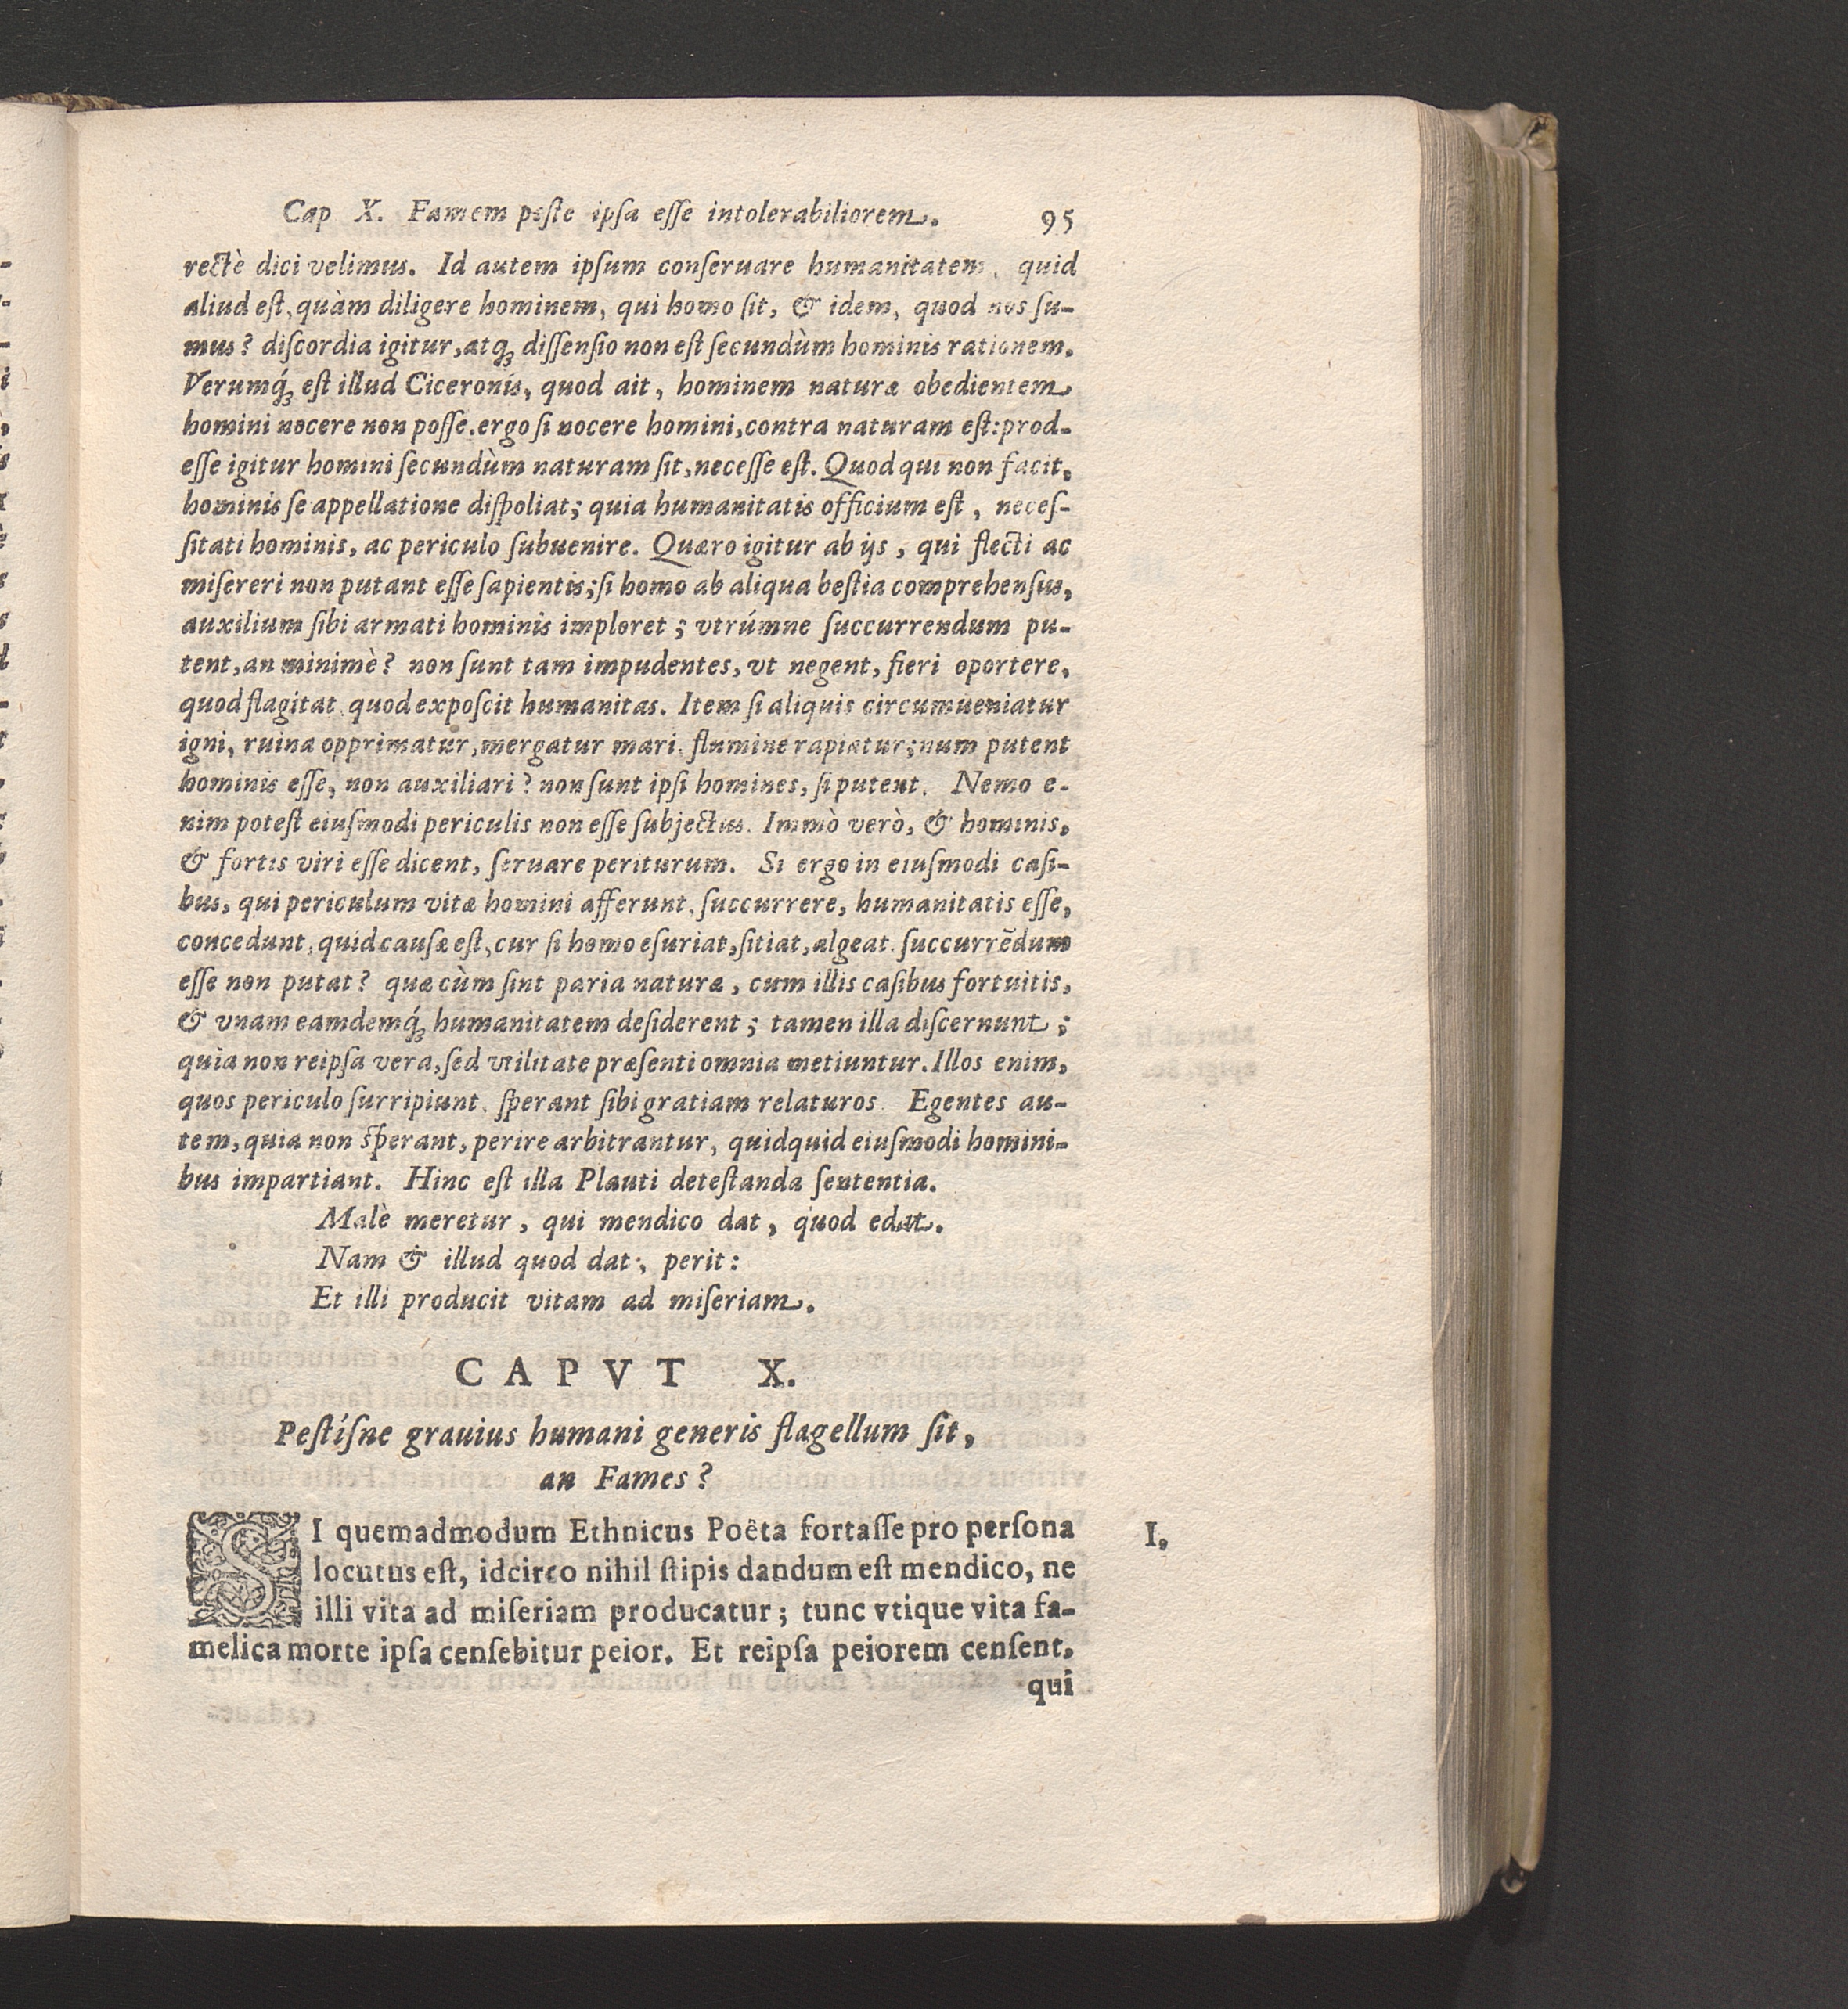 Cap X. Famem peste ipsa esse intolerabiliorem. 95
rectè dici velimus. Id autem ipsum conseruare humanitatem, quid
aliud est, quàm diligere hominem, qui homo sit, & idem, quod nos su-
mus? discordia igitur, atq; dissensio non est secundùm hominis rationem.
Verumq́; est illud Ciceronis, quod ait, hominem naturæ obedientem
homini nocere non posse. ergo si nocere homini, contra naturam est: prod-
esse igitur homini secundùm naturam sit, necesse est. Quod qui non facit,
hominis se appellatione dispoliat; quia humanitatis officium est, neces-
sitati hominis, ac periculo subuenire. Quæro igitur ab ijs, qui flecti ac
misereri non putant esse sapientis; si homo ab aliqua bestia comprehensus,
auxilium sibi armati hominis imploret; vtrúmne succurrendum pu-
tent, an minimè? non sunt tam impudentes, vt negent, fieri oportere,
quod flagitat, quod exposcit humanitas. Item si aliquis circumueniatur
igni, ruina opprimatur, mergatur mari, flumine rapiatur; num putent
hominis esse, non auxiliari? non sunt ipsi homines, si putent. Nemo e-
nim potest eiusmodi periculis non esse subjectus. Immò verò, & hominis,
& fortis viri esse dicent, seruare periturum. Si ergo in eiusmodi casi-
bus, qui periculum vitæ homini afferunt, succurrere, humanitatis esse,
concedunt, quid causæ est, cur si homo esuriat, sitiat, algeat, succurrẽdum
esse non putat? quæ cùm sint paria naturæ, cum illis casibus fortuitis,
& vnam eamdemq́; humanitatem desiderent; tamen illa discernunt;
quia non reipsa vera, sed vtilitate præsenti omnia metiuntur. Illos enim,
quos periculo surripiunt, sperant sibi gratiam relaturos. Egentes au-
tem, quia non sperant, perire arbitrantur, quidquid eiusmodi homini-
bus impartiant. Hinc est illa Plauti detestanda sententia.
Malè meretur, qui mendico dat, quod edat.
Nam & illud quod dat, perit:
Et illi producit vitam ad miseriam.
CAPVT X.
Pestísne grauius humani generis flagellum sit,
an Fames?
SI quemadmodum Ethnicus Poêta fortasse pro persona I.
locutus est, idcirco nihil stipis dandum est mendico, ne
illi vita ad miseriam producatur; tunc vtique vita fa-
melica morte ipsa censebitur peior. Et reipsa peiorem censent,
qui